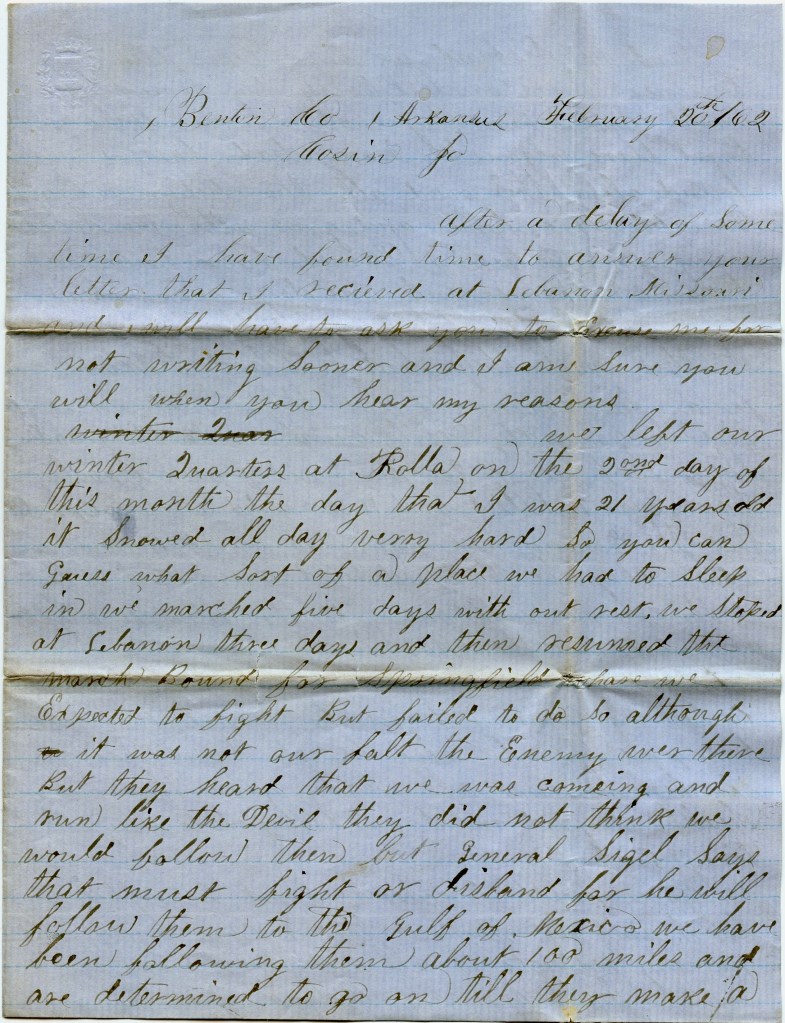 Bentin Co, Arkansas February 20th/62
Cosin Jo
after a delay of some
time I have found time to answer your
letter that I recieved at Lebanon Missouri
and i will have to ask you to Excuse me for
not writing Sooner and I am Sure you
will when you hear my reasons
winter Quar we left our
winter Quarters at Rolla on the 2nd day of
this month the day that I was 21 years old
it Snowed all day verry hard So you can
Guess what Sort of a place we had to Sleep
in we marched five days with out rest. we stoped
at Lebanon three days and then resumed the
march Bound for Springfield whare we
Expected to fight But failed to do so although
it was not our falt the Enemy wer there
But they heard that we was comeing and
run like the Devil they did not think we
would follow then but General Sigel Says
that must fight or disband for he will
follow them to the Gulf of Mexico we have
been following them about 100 miles and
are determined to go on till they make a